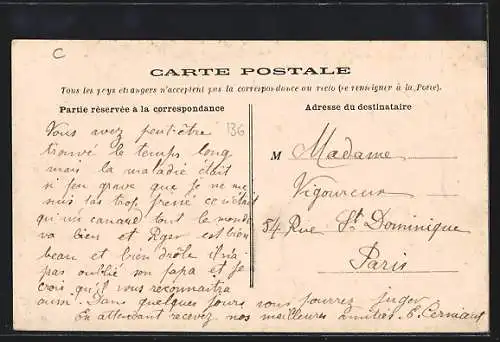 C
CARTE POSTALE
Tous les pays etrangers n'acceptent pas la correspondance au recto (se renseigner à la Poste).
Partie réservée à la correspondance
Adresse du destinataire
136
Vous avez peut-être
trouvé le temps long
mais la maladie était
si peu grave que je ne me
suis pas trop pressé
qu'un canard tout le monde
va bien et Roger est bien
beau et bien drôle il n'a
pas oublié son papa et je
crois qu'il vous reconnaitra
aussi. Dans quelques jours vous pourrez juger
En attendant recevez nos meilleures amitiés. E.
M Madame
Vigoureux
54 Rue St Dominique
Paris